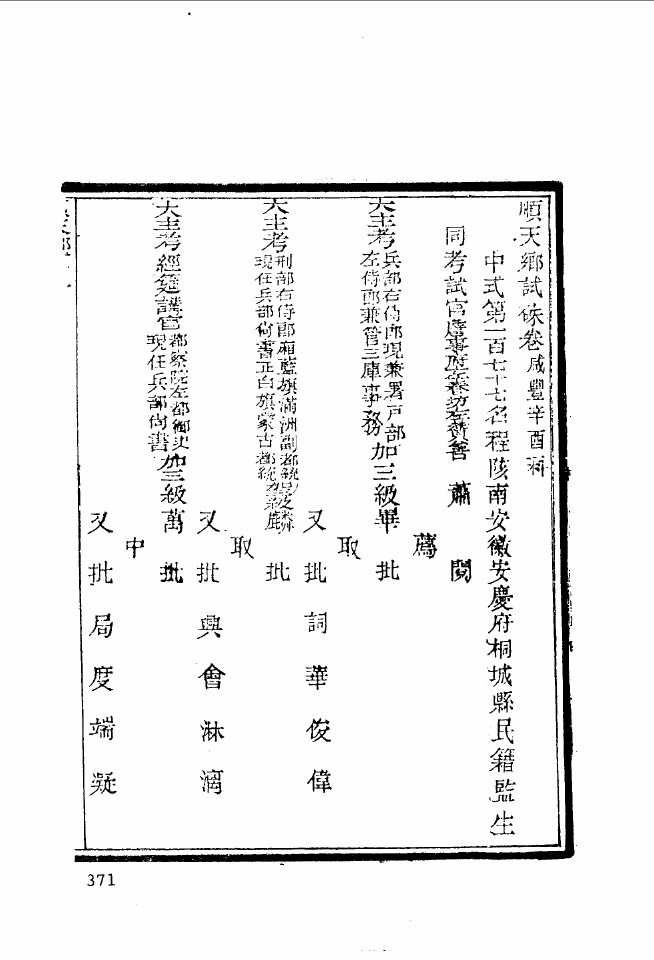 順天鄉試硃卷咸豐辛酉科
中式第一百七十七名程陔南安徽安慶府桐城縣民籍監生
同考試官詹事府左春坊左贊善 蕭 閱
薦
大主考兵部右侍郎現兼署戶部左侍郎兼管三庫事務加三級畢 批
取
又批詞華俊偉
大主考刑部右侍郎廂藍旗滿洲副都統現任兵部尚書正白旗蒙古都統麟 批
取
又批興會淋漓
大主考經筵講官都察院左都御史現任兵部尚書加三級萬 批
中
又批局度端凝
371